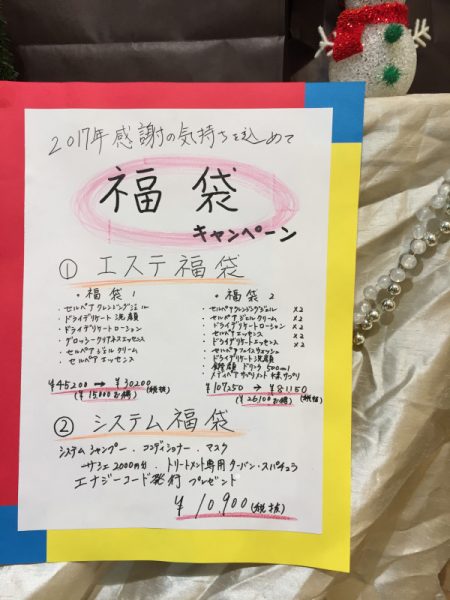 2017年 感謝の気持ちを込めて
福袋
キャンペーン
① エステ福袋
・福袋 1
・セルベアクレンジングジェル
・ドライデリケート洗顔
・ドライデリケートローション
・グロッシークリアネスエッセンス
・セルベアジェルクリーム
・セルベアエッセンス
¥45200 → ¥30200 (税抜)
(¥15000お得)
・福袋 2
・セルベアクレンジングジェル ×2
・セルベアジェルクリーム ×2
・ドライデリケートローション ×2
・セルベアエッセンス ×2
・ドライデリケートエッセンス ×2
・セルベアフェイスウォッシュ
・ドライデリケート洗顔
ドリンク 500ml
¥107250 → ¥81150
(¥26100お得) (税抜)
② システム福袋
システムシャンプー・コンディショナー・マスク
サシェ2000円分・トリートメント専用ターバン・スパチュラ
エナジーコード発行 プレゼント
¥10,900 (税抜)